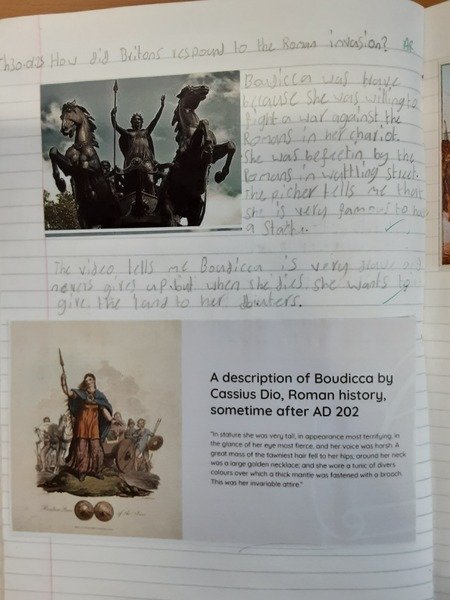 Th30.0.25 How did Britons respond to the Roman invasion?
Boudicca was brave
because she was willing to
fight a war against the
Romans in her chariot.
She was befectin by the
Romans in wattling street.
The picher tells me that
she is very famous to have
a statue.
The video tells me Boudicca is very brave and
nevers gives up but when she dies she wants to
give the land to her douters.
A description of Boudicca by
Cassius Dio, Roman history,
sometime after AD 202
"In stature she was very tall, in appearance most terrifying, in
the glance of her eye most fierce, and her voice was harsh. A
great mass of the tawniest hair fell to her hips; around her neck
was a large golden necklace; and she wore a tunic of divers
colours over which a thick mantle was fastened with a brooch.
This was her invariable attire."